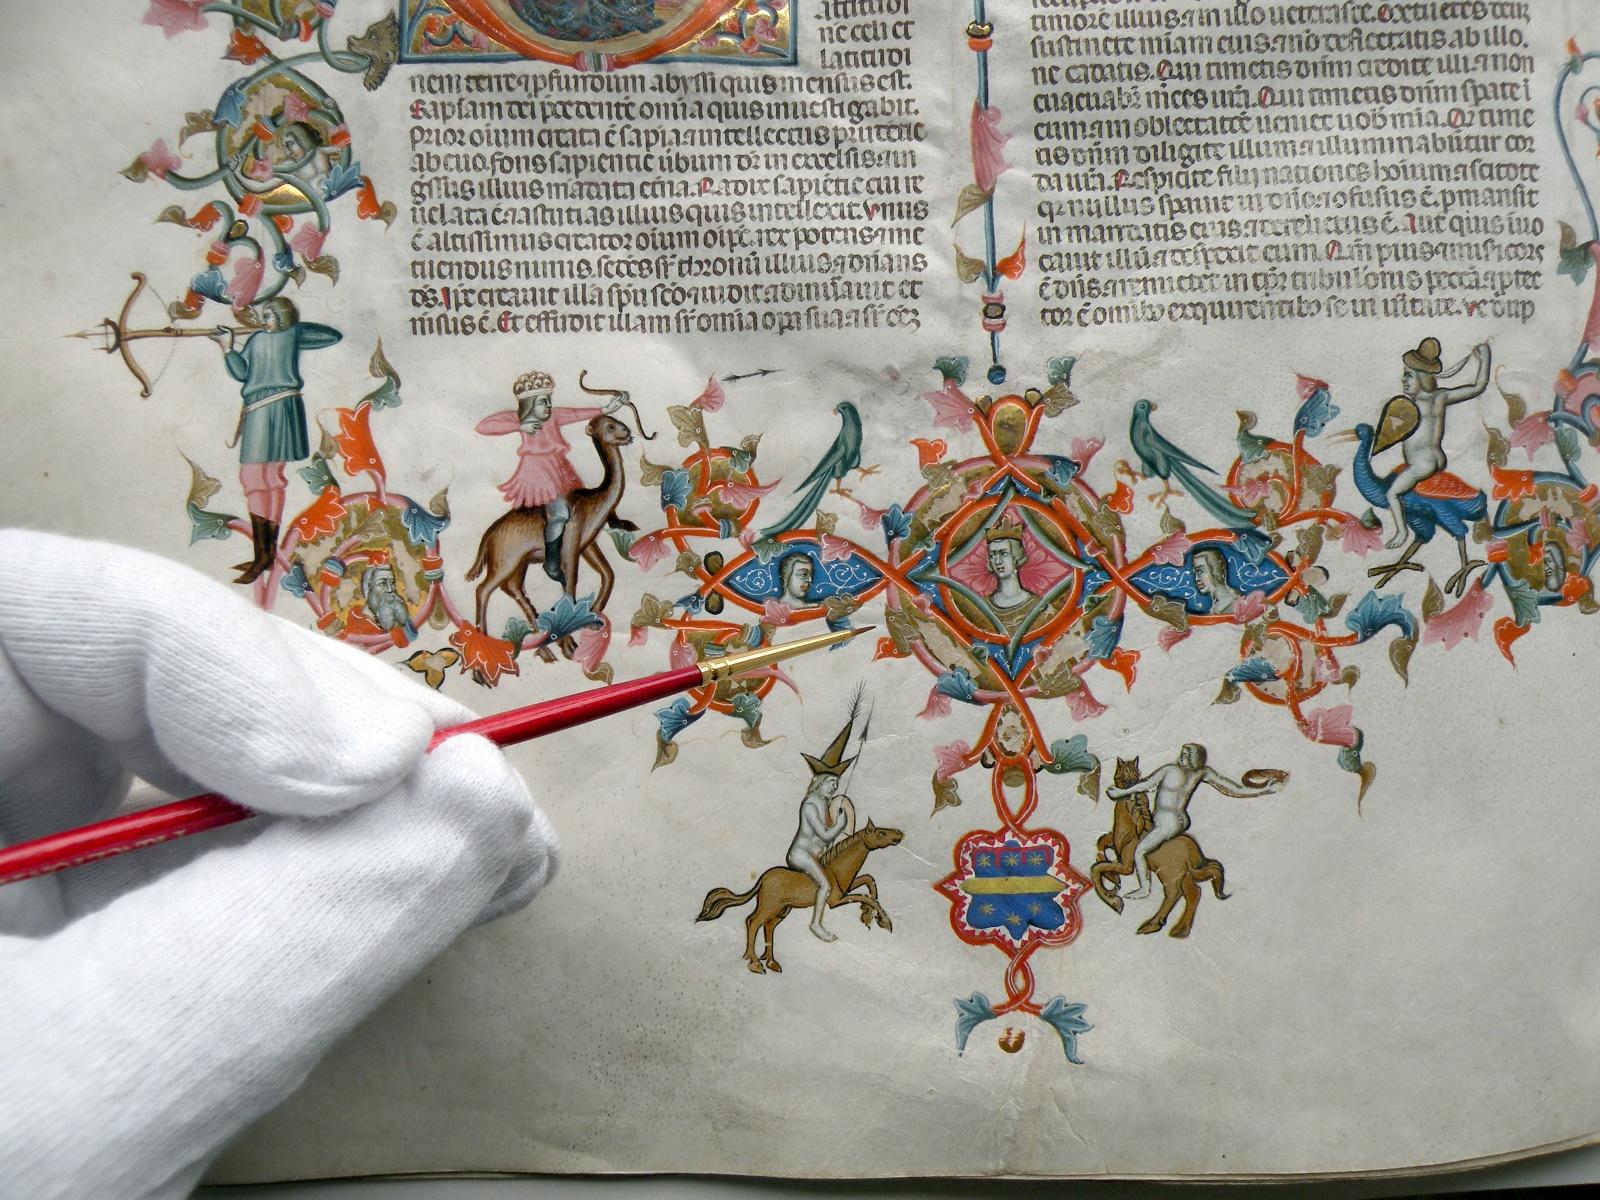 ne celi et
latitudi
nem terre et pfundum abyssi quis mensus est.
Sapiam dei precedente omia quis investigabit.
Prior oium creata e sapia et intellectus prudentie
ab evo. fons sapientie ubum dei in excelsis et in
gssus illius madata etna. Radix sapietie cui re
uelata e et astutias illius quis intellexit. Unus
e altissimus creator oium oipe. rex potens et me
tuendus nimis. sedes sr thronu illius et dnans
ds. Ipe creavit illa spu sco et uidit et dinumauit et
msus e. Et effudit illam sr omia opa sua et sr oez
timore illius et in illo ueterasce.
sustinete miam eius et no deflectatis ab illo.
ne cadatis. Qui timetis dnm credite illi et non
euacuabr mces ura. Qui timetis dnm spate i
eum et in oblectatoe ueniet uob mia. Qi time
tis dnm diligite illum et illuminabutur cor
da ura. Respicite filij nationes hoium et scitote
qr nullus spauit in dno et ofusus e. pmansit
in mandatis eius et derelictus e. Aut quis iuo
cauit illu et despexit eum. Qm pius et misicors
e dns et remittet in tpr tribulonis pecca et ptec
tor e omib exquirentib se in uitate. Ve dup